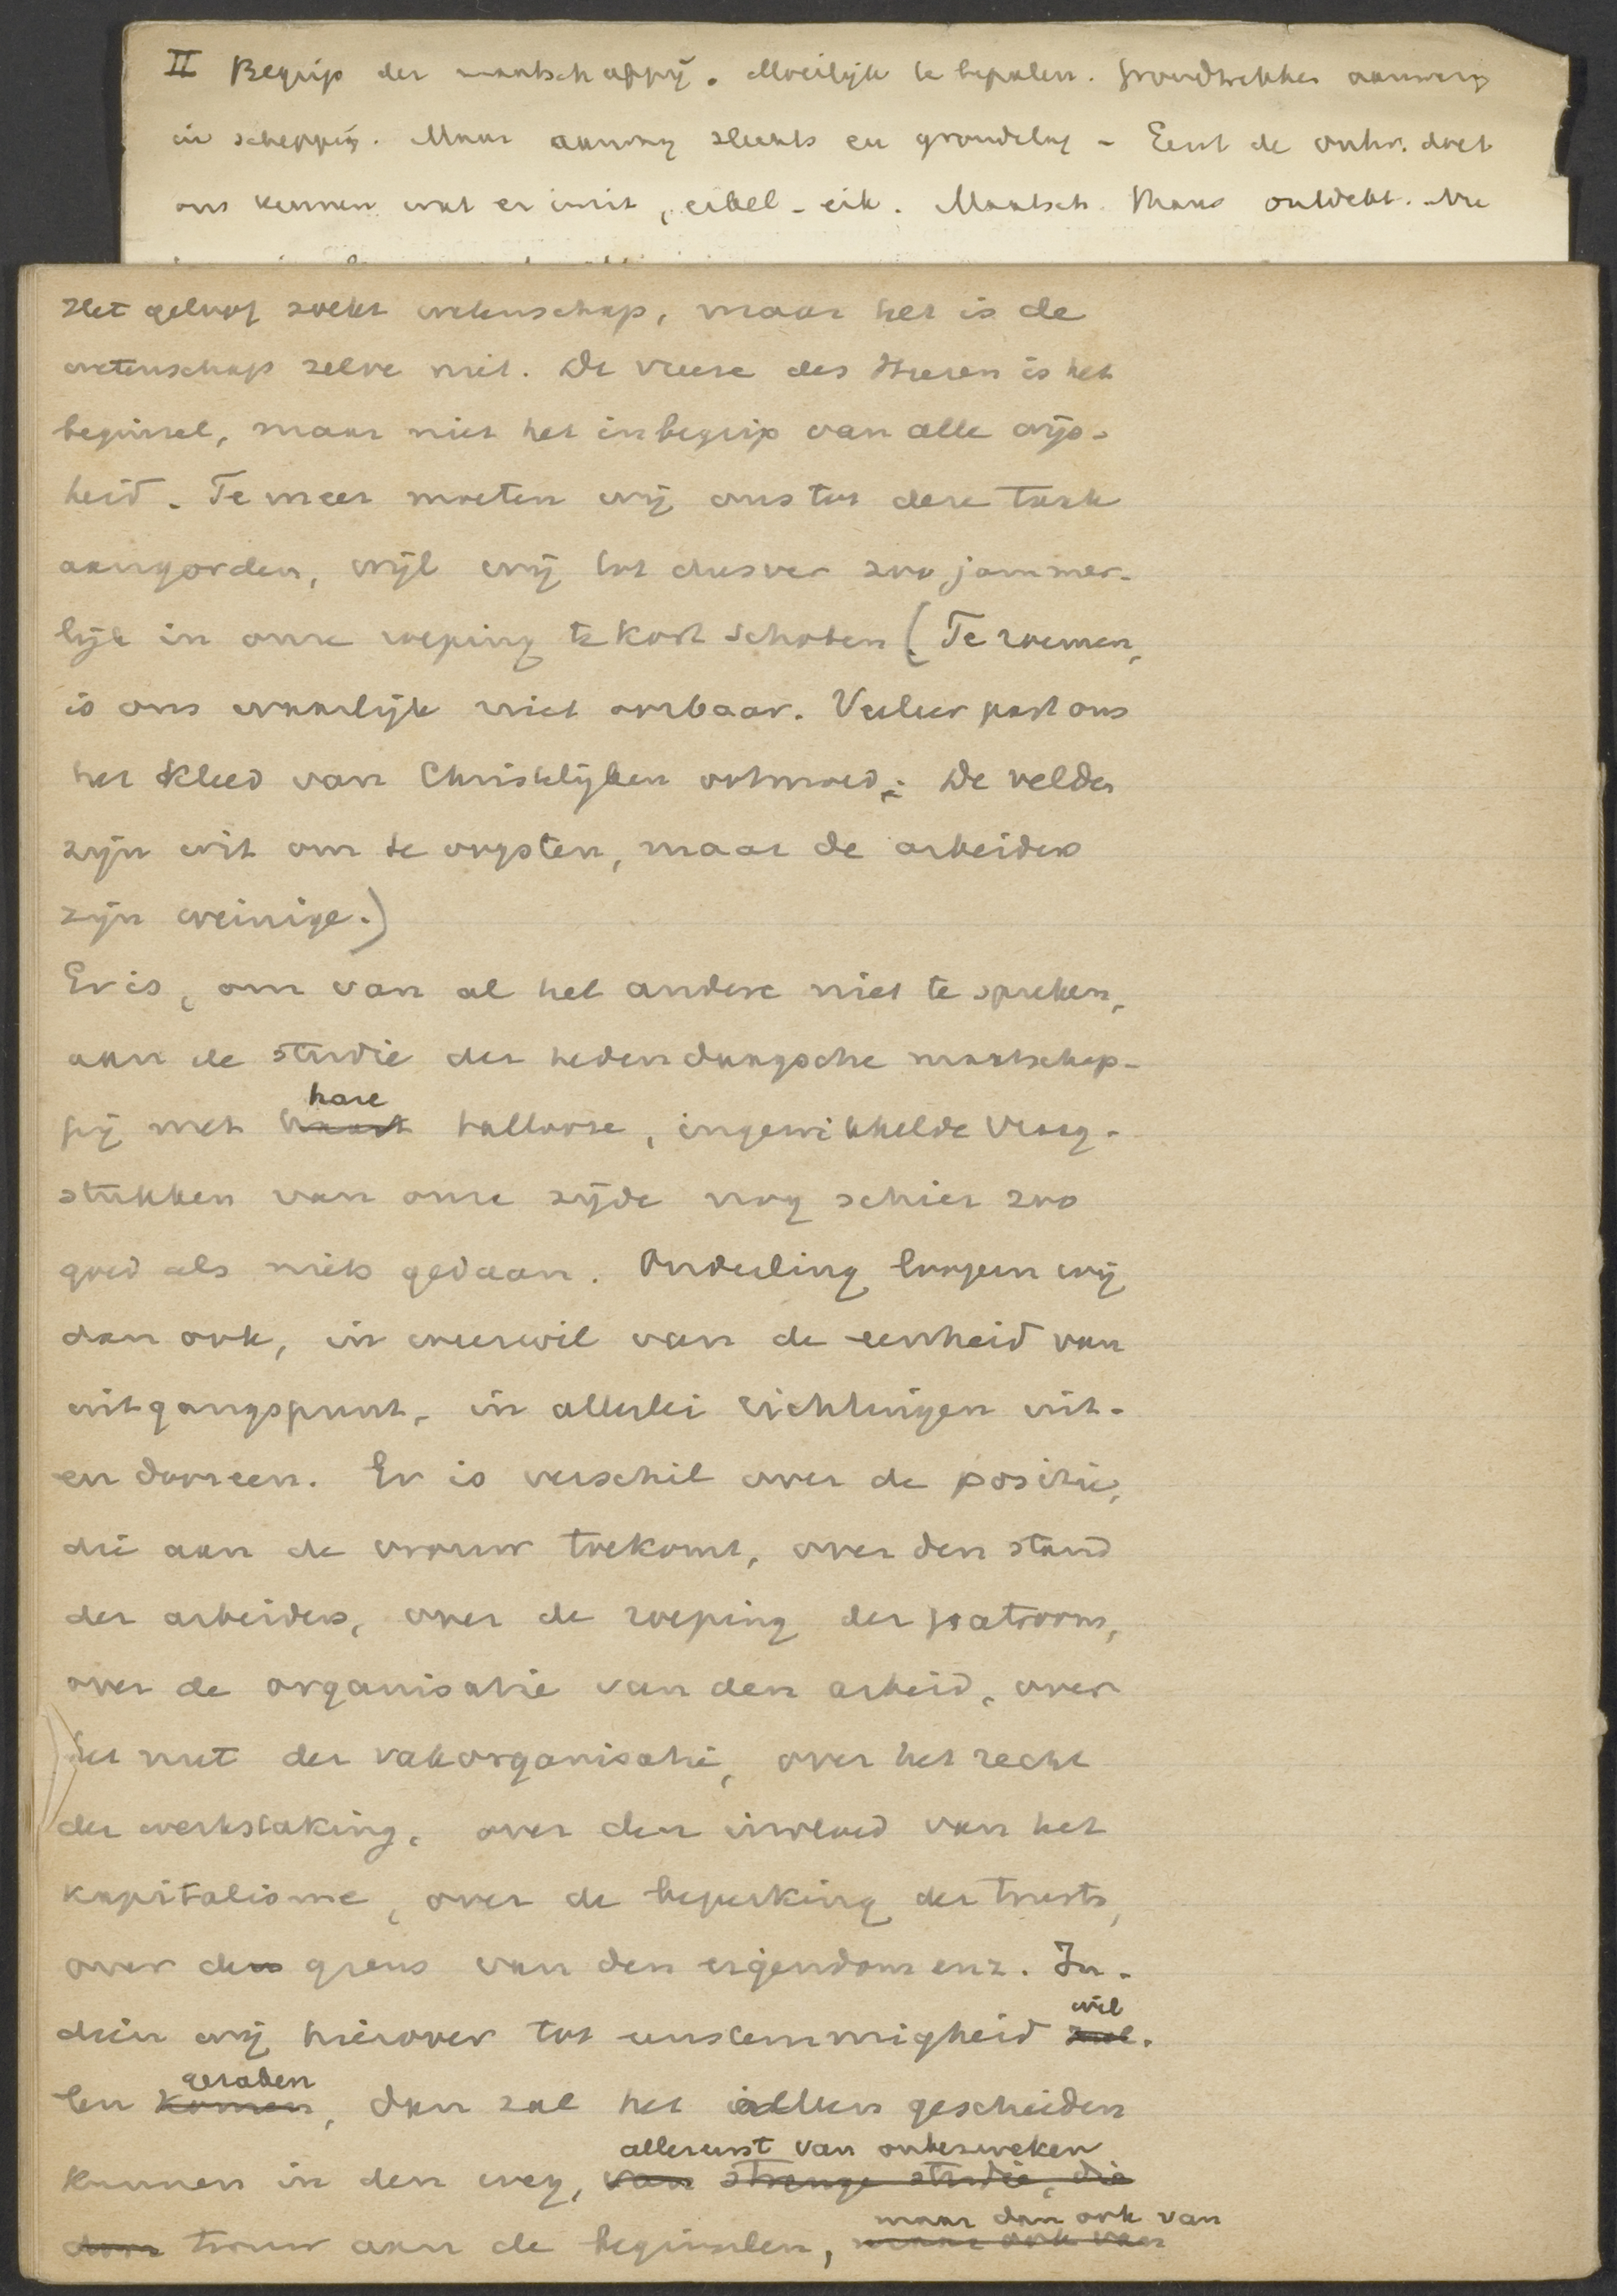 II Begrip der maatschappij. Moeilijk te bepalen. Grondtrekken aanwezig
in schepping. Maar aanweg slechts en grondslag - Eerst de ontw. doet
ons kennen wat er in zit, eikel - eik. Maatsch. thans ontdekt. Nu
Het geloof zoekt wetenschap, maar het is de
wetenschap zelve niet. De vreeze des Heeren is het
beginsel, maar niet het inbegrip van alle wijs-
heid. Te meer moeten wij ons tot deze taak
aangorden, wijl wij tot dusver zoo jammer-
lijk in onze roeping te kort schoten (Te roemen,
is ons waarlijk niet oorbaar. Veeleer past ons
het kleed van Christelijken ootmoed; De velden
zijn wit om te oogsten, maar de arbeiders
zijn weinige.)
Er is, om van al het andere niet te spreken,
aan de studie der hedendaagsche maatschap-
pij met hare tallooze, ingewikkelde vraag-
stukken van onze zijde nog schier zoo
goed als niets gedaan. Onderling loopen wij
dan ook, in weerwil van de eenheid van
uitgangspunt, in allerlei richtingen uit-
en dooreen. Er is verschil over de positie,
die aan de vrouw toekomt, over den stand
der arbeiders, over de roeping der patroons,
over de organisatie van den arbeid, over
het nut der vakorganisatie, over het recht
der werkstaking, over den invloed van het
kapitalisme, over de beperking der trusts,
over de grens van den eigendom enz. In-
dien wij hierover tot eenstemmigheid wil-
len geraken, dan zal het alleen geschieden
kunnen in den weg, allereerst van onbezweken
trouw aan de beginselen, maar dan ook van